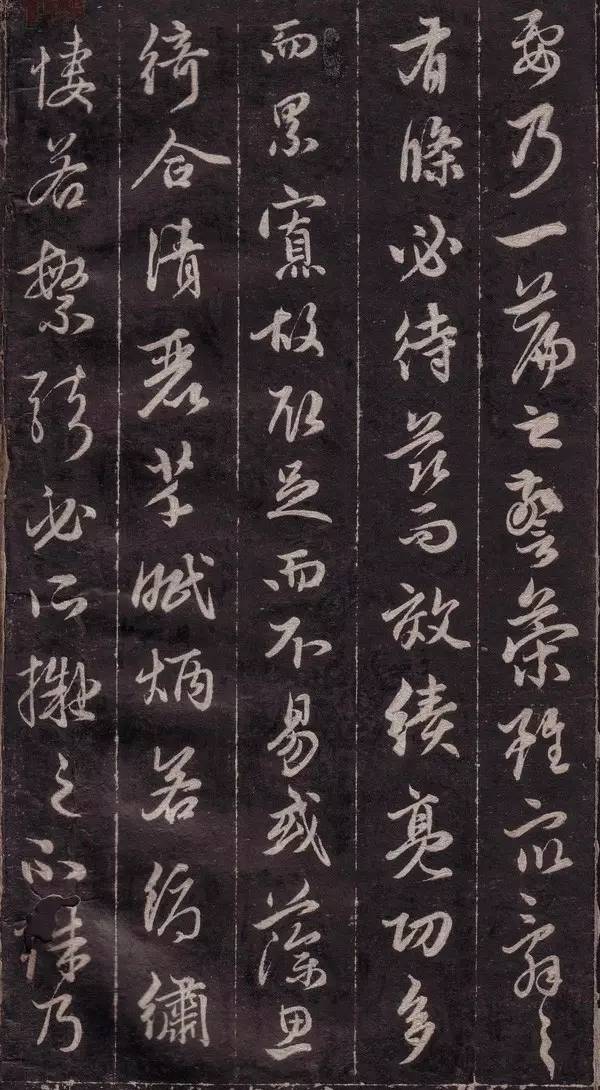 要乃一篇之警策雖眾辭之
有條必待茲而效績亮功多
而累寡故取足而不易或藻思
綺合清麗芊眠炳若縟繡
悽若繁絃必所擬之不殊乃